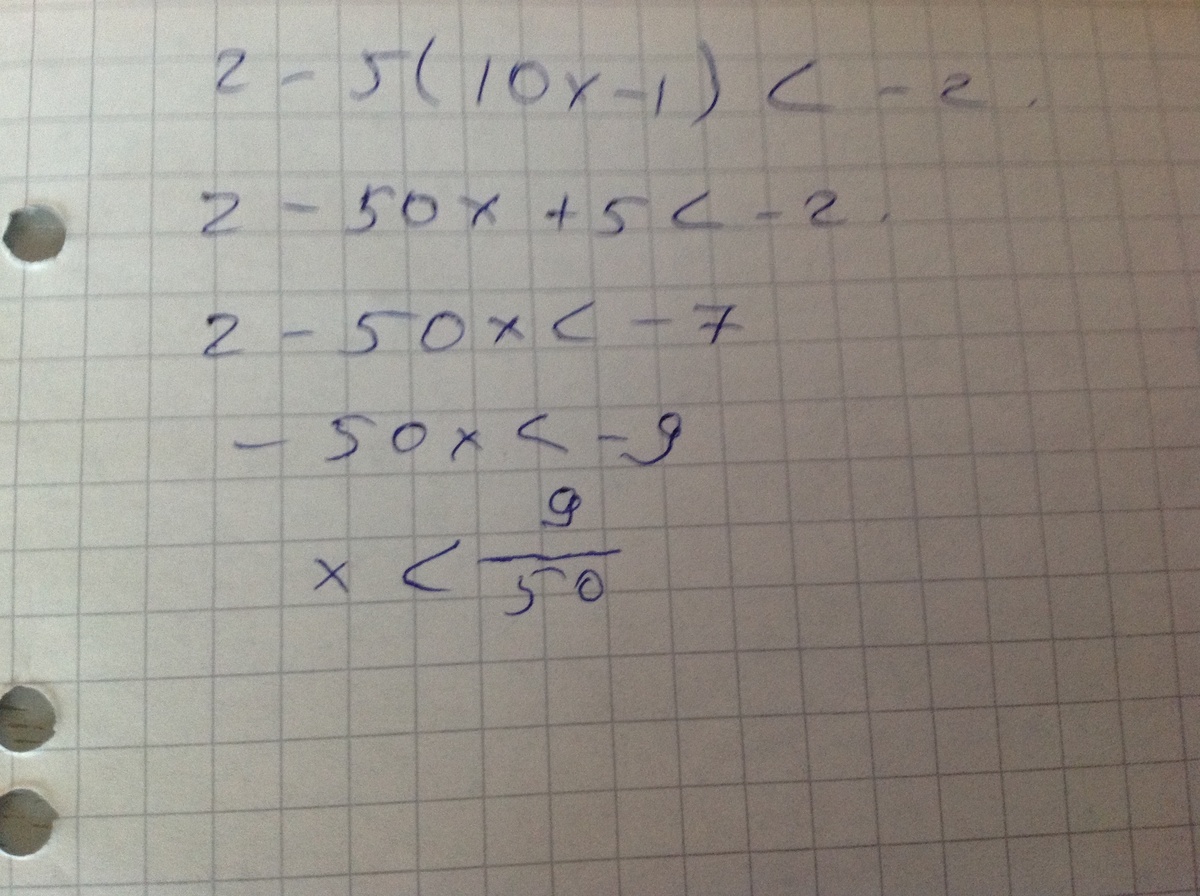 2 - 5(10x-1) < - 2.
2 - 50x + 5 < - 2.
2 - 50x < - 7
- 50x < - 9
x < 9/50